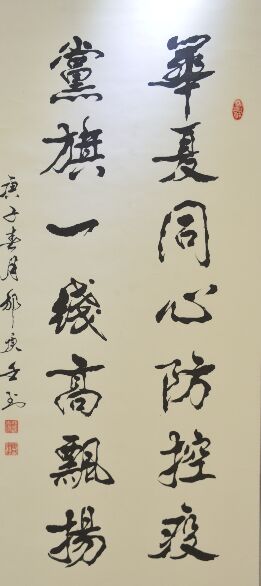 華夏同心防控疫
黨旗一綫高飄揚
庚子春月